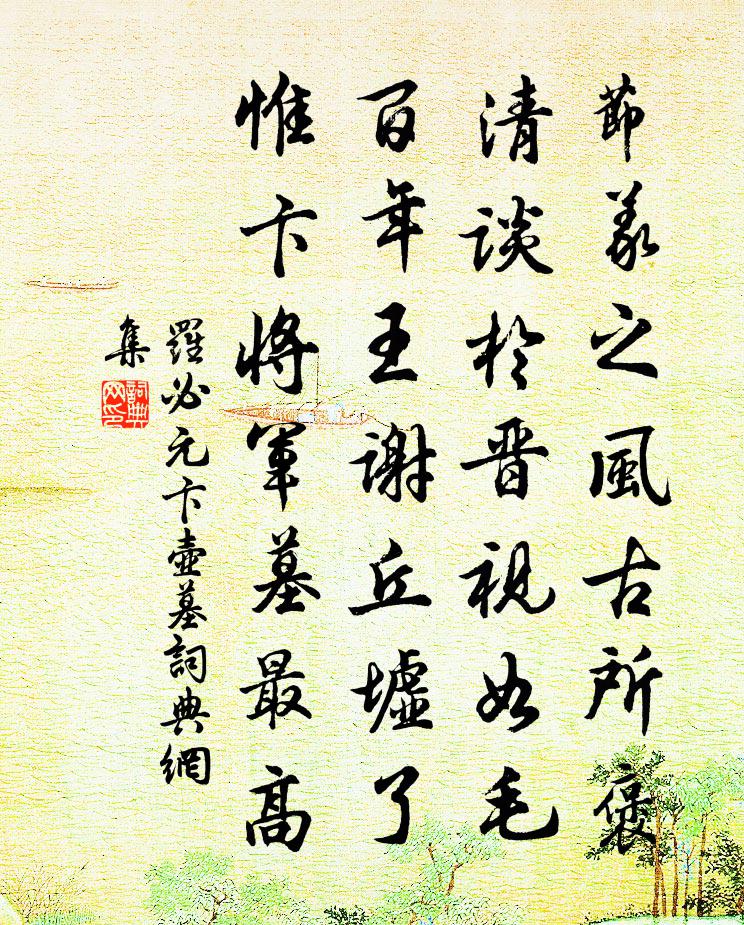 節義之風古所褒
清談於晋視如毛
百年王謝丘墟了
惟卞將軍墓最高
羅必元卞壺墓詞典網
集
詞典
网印